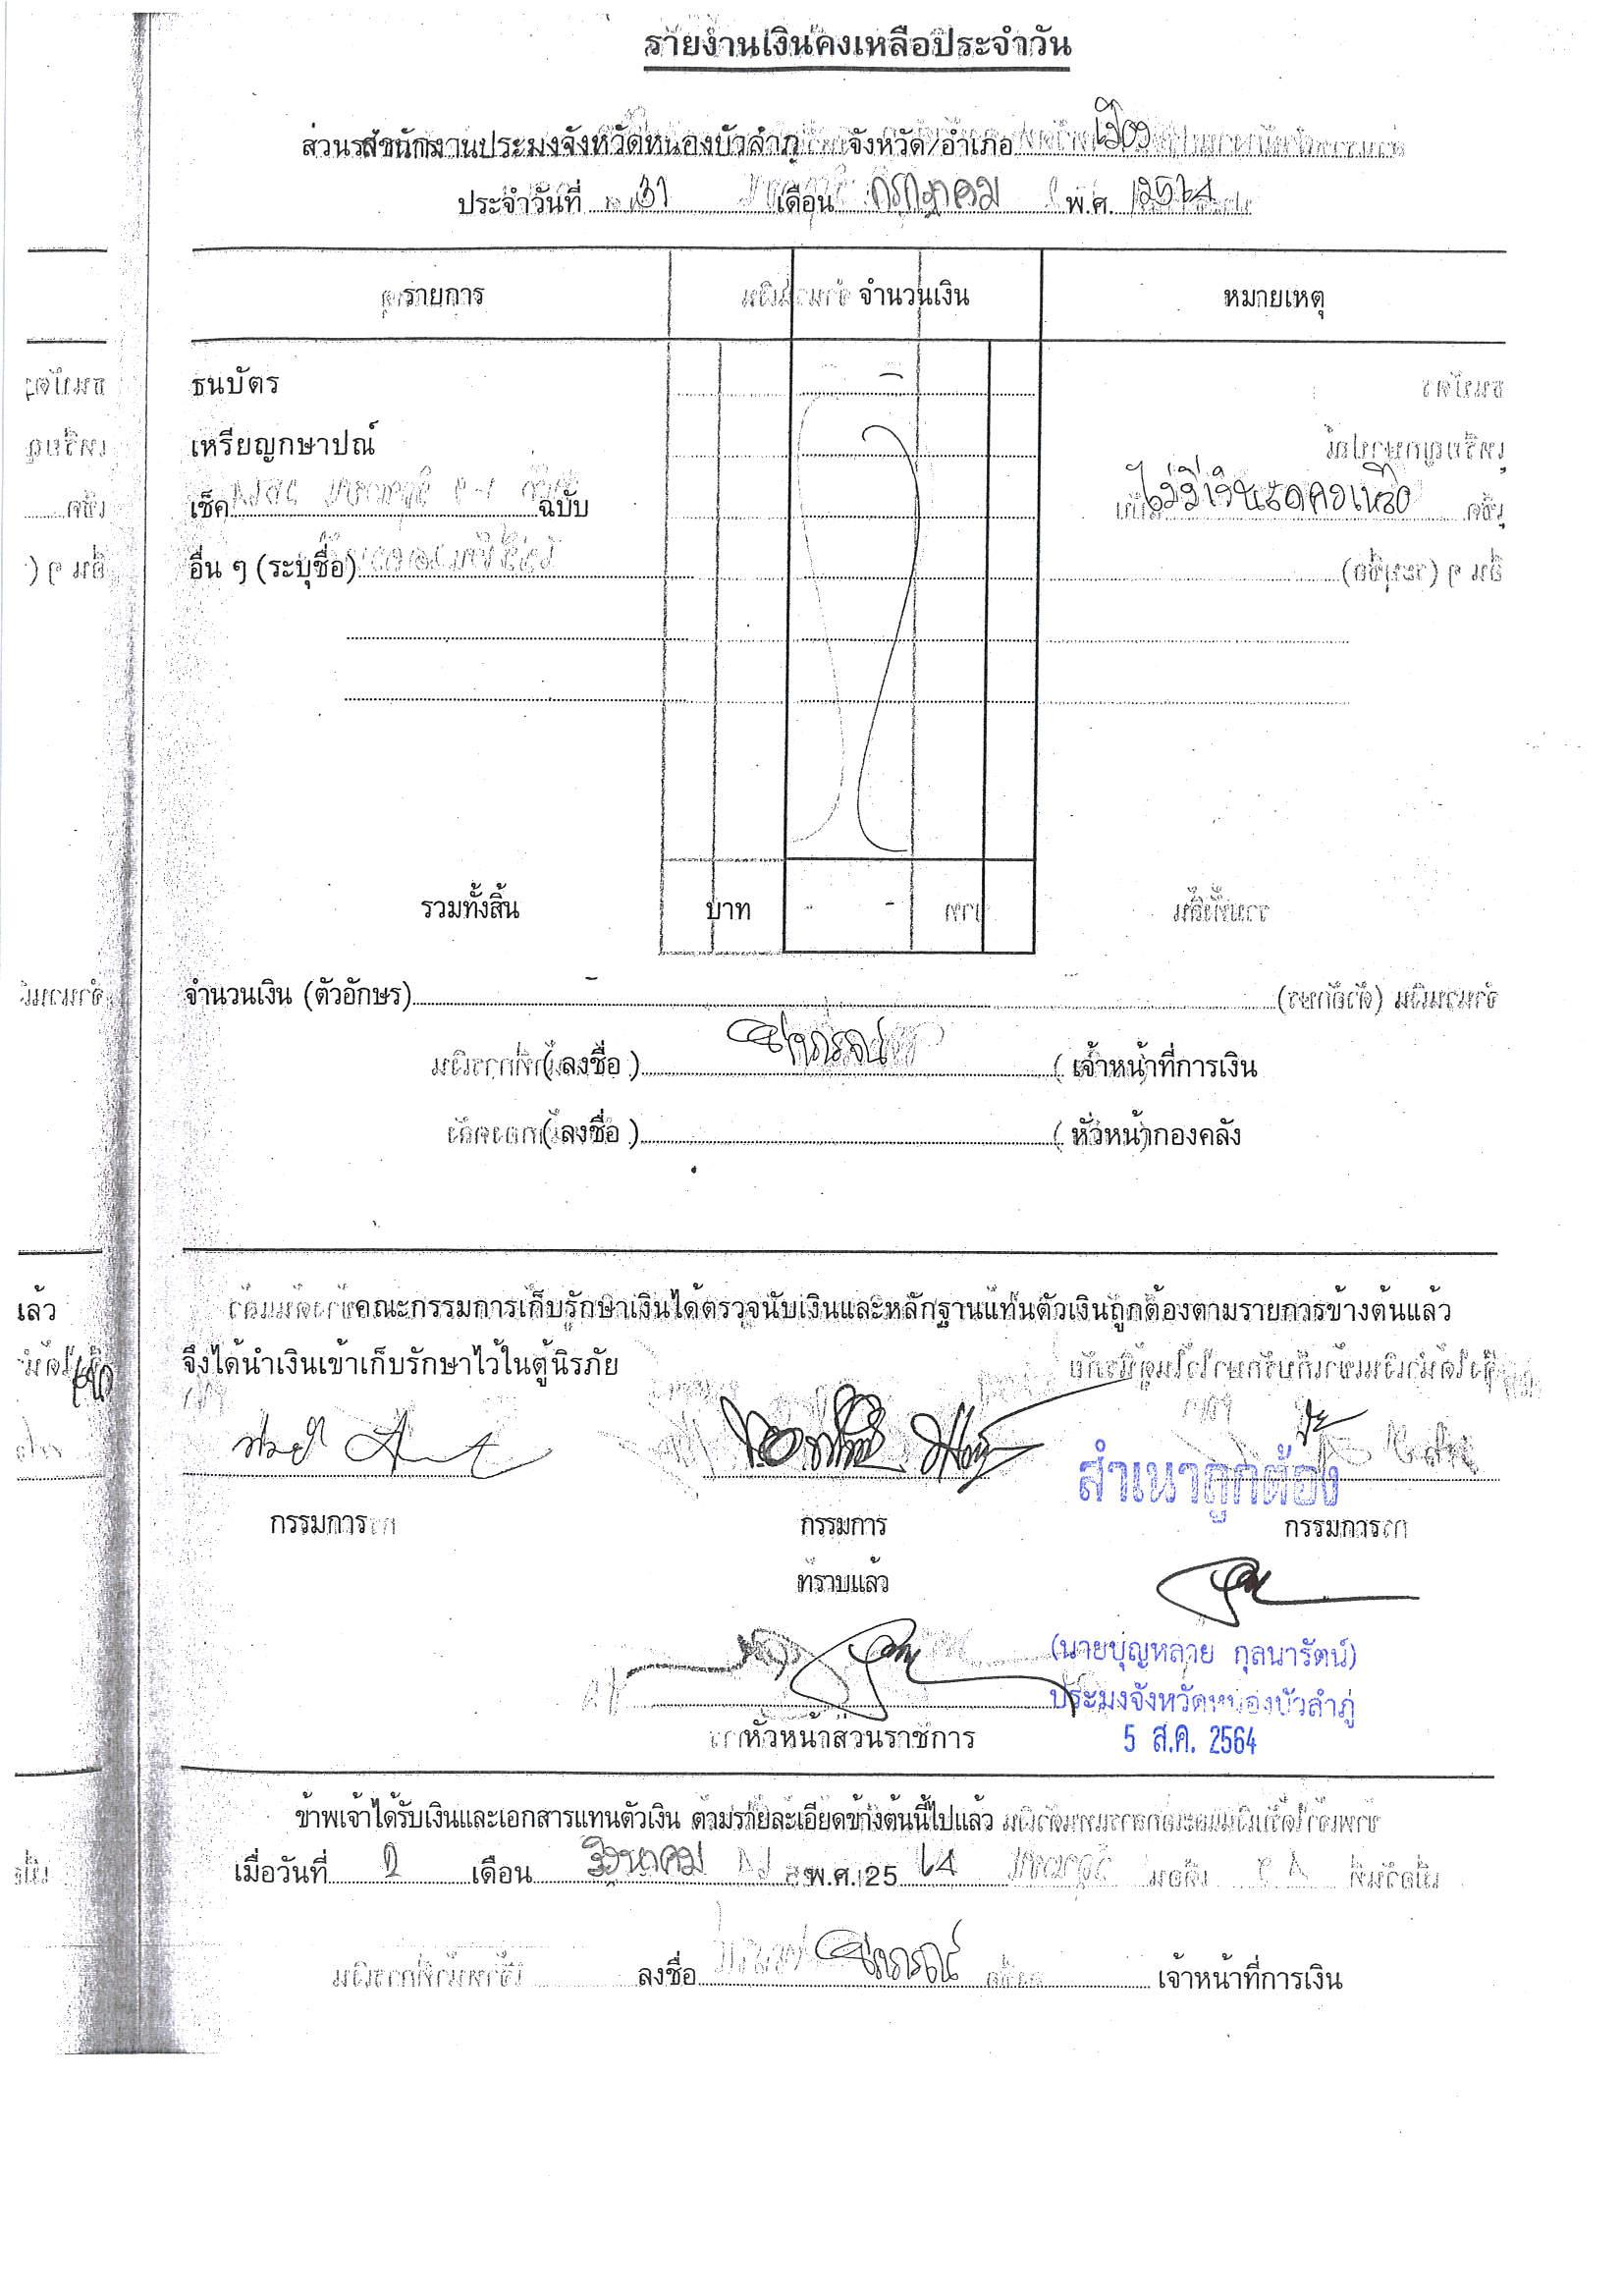 รายงานเงินคงเหลือประจำวัน
สำนักงานประมงจังหวัดหนองบัวลำภู จังหวัด/อำเภอ เมือง
ประจำวันที่ 31 เดือน กรกฎาคม พ.ศ. 2564
รายการ จำนวนเงิน หมายเหตุ
ธนบัตร -
เหรียญกษาปณ์
เช็ค ฉบับ ไม่มีเงินสดคงเหลือ
อื่น ๆ (ระบุชื่อ)
รวมทั้งสิ้น บาท -
จำนวนเงิน (ตัวอักษร) -
(ลงชื่อ) เจ้าหน้าที่การเงิน
(ลงชื่อ) หัวหน้ากองคลัง
เล้ว
คณะกรรมการเก็บรักษาเงินได้ตรวจนับเงินและหลักฐานแทนตัวเงินถูกต้องตามรายการข้างต้นแล้ว
จึงได้นำเงินเข้าเก็บรักษาไว้ในตู้นิรภัย
สำเนาถูกต้อง
กรรมการ กรรมการ กรรมการ
ทราบแล้ว
(นายบุญหลาย กุลนารัตน์)
ประมงจังหวัดหนองบัวลำภู
หัวหน้าส่วนราชการ
5 ส.ค. 2564
ข้าพเจ้าได้รับเงินและเอกสารแทนตัวเงิน ตามรายละเอียดข้างต้นนี้ไปแล้ว
เมื่อวันที่ 2 เดือน สิงหาคม พ.ศ. 25 64
ลงชื่อ เจ้าหน้าที่การเงิน